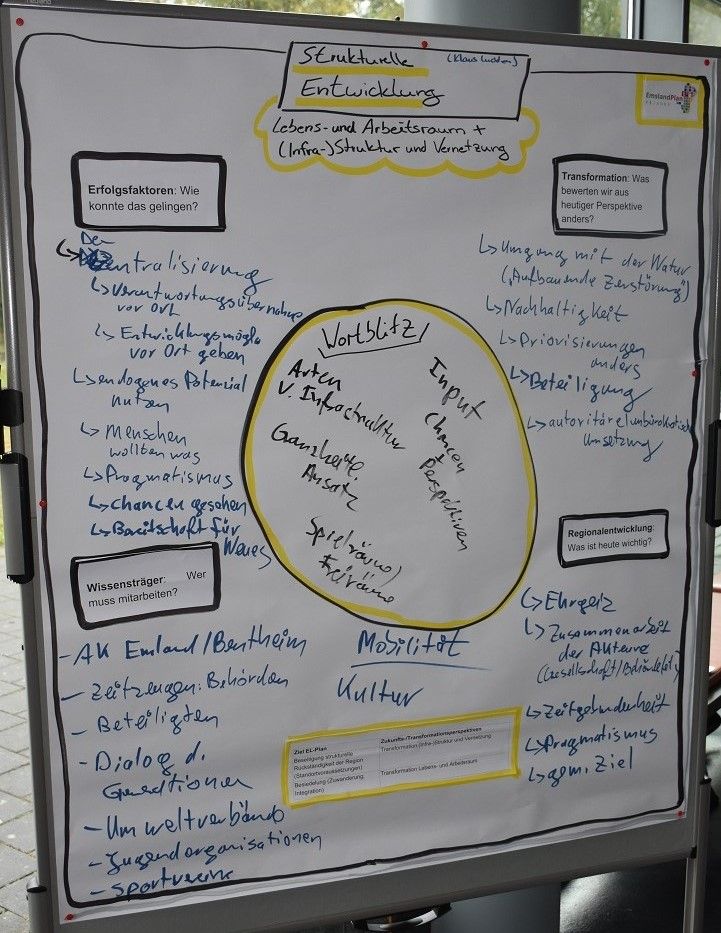 Strukturelle
Entwicklung
Lebens- und Arbeitsraum +
(Infra-)Struktur und Vernetzung
EmslandPlan
Erfolgsfaktoren: Wie
konnte das gelingen?
Dezentralisierung
↳ Verantwortungsübernahme
vor Ort
↳ Entwicklungsmögl.
vor Ort geben
↳ endogenes Potenzial
nutzen
↳ Menschen
wollten was
↳ Pragmatismus
↳ Chancen gesehen
↳ Bereitschaft für
Neues
Transformation: Was
bewerten wir aus
heutiger Perspektive
anders?
↳ Umgang mit der Natur
("Aufbauende Zerstörung")
↳ Nachhaltigkeit
↳ Priorisierungen
anders
↳ Beteiligung
↳ autoritäre/unbürokratische
Umsetzung
Wortblitz
Arten
v. Infrastruktur
Ganzheitl.
Ansatz
Spielräume/
Freiräume
Input
Chancen
+
Perspektiven
Wissensträger: Wer
muss mitarbeiten?
- AK Emsland/Bentheim
- Zeitzeugen: Behörden
- Beteiligten
- Dialog d.
Generationen
- Umweltverbände
- Jugendorganisationen
- Sportvereine
Mobilität
Kultur
Regionalentwicklung:
Was ist heute wichtig?
↳ Ehrgeiz
↳ Zusammenarbeit
der Akteure
(Gesellschaft/Behörde
↳ Zeitgebundenheit
↳ Pragmatismus
↳ gem. Ziel
Ziel EL-Plan
Beseitigung strukturelle
Rückständigkeit der Region
(Standortvoraussetzungen)
Besiedelung (Zuwanderung,
Integration)
Zukunfts-/Transformationsperspektiven
Transformation (Infra-)Struktur und Vernetzung
Transformation Lebens- und Arbeitsraum